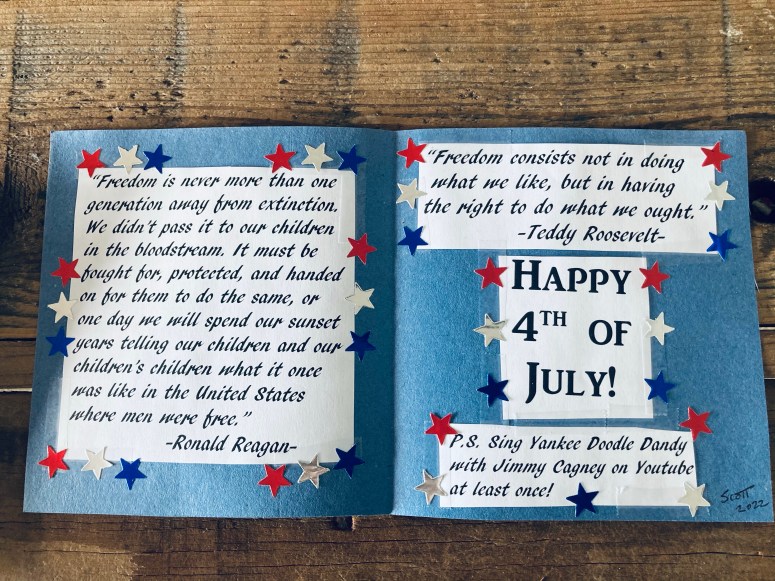 "Freedom is never more than one
generation away from extinction.
We didn't pass it to our children
in the bloodstream. It must be
fought for, protected, and handed
on for them to do the same, or
one day we will spend our sunset
years telling our children and our
children's children what it once
was like in the United States
where men were free."
-Ronald Reagan-
"Freedom consists not in doing
what we like, but in having
the right to do what we ought."
-Teddy Roosevelt-
HAPPY
4TH OF
JULY!
P.S. Sing Yankee Doodle Dandy
with Jimmy Cagney on Youtube
at least once!
Scott
2022